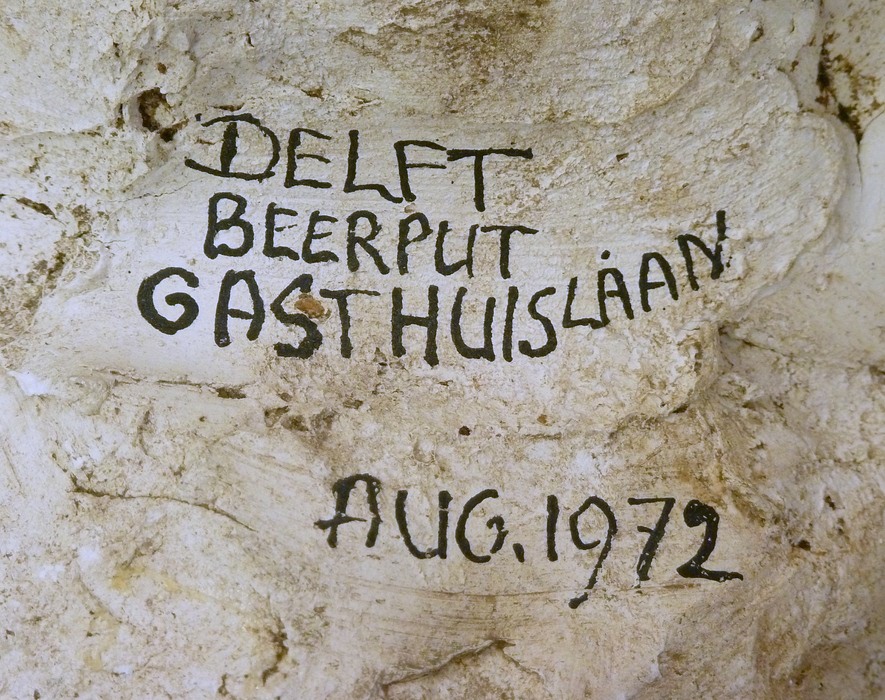 DELFT
BEERPUT
GASTHUISLAAN
AUG. 1972